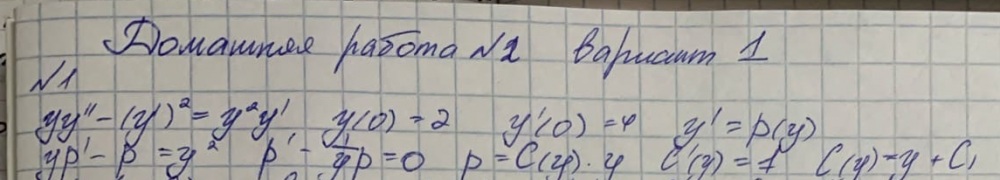 Домашняя работа №2 вариант 1
№1
yy'' - (y')² = y²y' y(0) = 2 y'(0) = 4 y' = p(y)
yp' - p = y² p' - 1/y p = 0 p = C(y)·y C'(y) = 1 C(y) = y + C₁